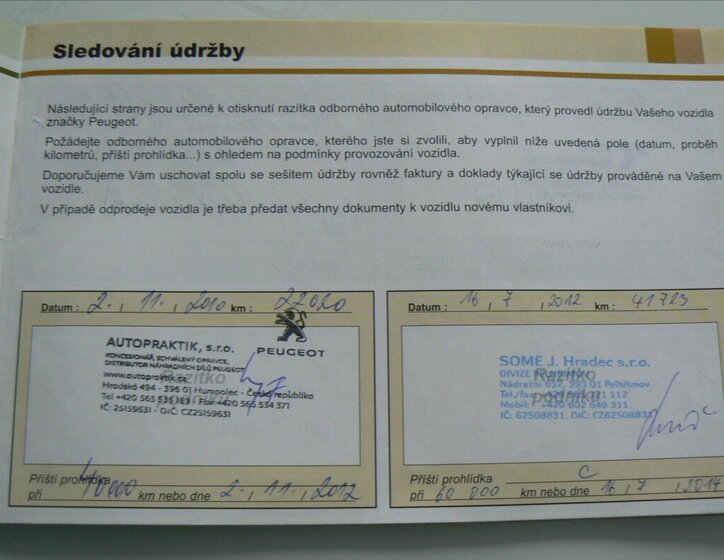 Sledování údržby
Následující strany jsou určené k otisknutí razítka odborného automobilového opravce, který provedl údržbu Vašeho vozidla
značky Peugeot.
Požádejte odborného automobilového opravce, kterého jste si zvolili, aby vyplnil níže uvedená pole (datum, proběh
kilometrů, příští prohlídka...) s ohledem na podmínky provozování vozidla.
Doporučujeme Vám uschovat spolu se sešitem údržby rovněž faktury a doklady týkající se údržby prováděné na Vašem
vozidle.
V případě odprodeje vozidla je třeba předat všechny dokumenty k vozidlu novému vlastníkovi.
Datum : 2. , 11. , 2010 km : 22020
AUTOPRAKTIK, s.r.o.
PEUGEOT
KONCESIONÁŘ, SCHVÁLENÝ OPRAVCE,
DISTRIBUTOR NÁHRADNÍCH DÍLŮ PEUGEOT
www.autopraktik.cz
Razítko
Hradská 494 - 396 01 Humpolec - Česká republika
Tel +420 565 536 169 - Fax +420 565 534 371
IČ: 25159631 - DIČ: CZ25159631
Příští prohlídka
při 40000 km nebo dne 2. , 11. , 2012
Datum : 16 , 7 , 2012 km : 41723
SOME J. Hradec s.r.o.
DIVIZE
Razítko
Nádražní 652, 393 01 Pelhřimov
podniku
Mobil: +420 602 649 311
IČ: 62508831, DIČ: CZ62508831
Příští prohlídka C
při 60 000 km nebo dne 16 , 7 , 2014